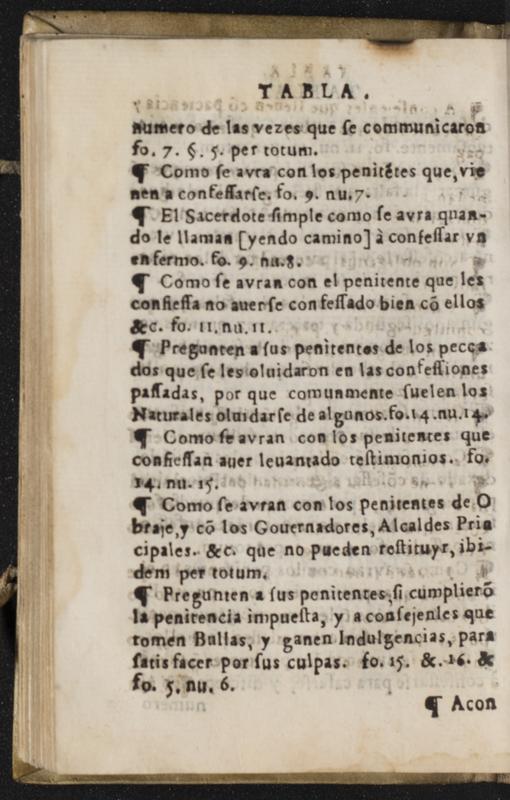 TABLA.
numero de las vezes que ſe communicaron
fo. 7. §. 5. per totum.
¶ Como ſe avra con los penitẽtes que, vie
nen a confeſſarſe. fo. 9. nu. 7.
¶ El Sacerdote ſimple como ſe avra quan-
do le llaman [yendo camino] à confeſſar vn
enfermo. fo. 9. nu. 8.
¶ Como ſe avran con el penitente que les
confieſſa no auerſe confeſſado bien cõ ellos
&c. fo. 11. nu. 11.
¶ Pregunten a ſus penitentes de los pecca
dos que ſe les oluidaron en las confeſſiones
paſſadas, por que comunmente ſuelen los
Naturales oluidarſe de algunos. fo. 14. nu. 14.
¶ Como ſe avran con los penitentes que
confieſſan auer leuantado teſtimonios. fo.
14. nu. 15.
¶ Como ſe avran con los penitentes de O
braje, y cõ los Gouernadores, Alcaldes Prin
cipales. &c. que no pueden reſtituyr, ibi-
dem per totum.
¶ Pregunten a ſus penitentes, ſi cumplierõ
la penitencia impueſta, y aconſejenles que
tomen Bullas, y ganen Indulgencias, para
ſatisfacer por ſus culpas. fo. 15. &. 16. &
fo. 5. nu. 6.
¶ Acon